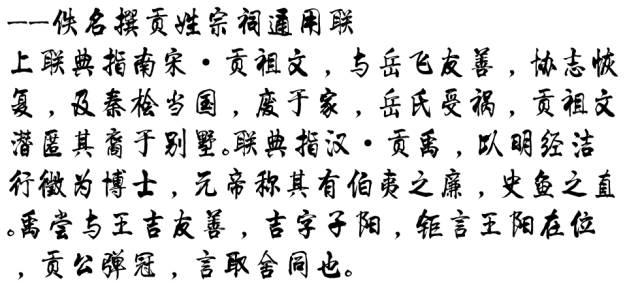 ——佚名撰贡姓宗祠通用联
上联典指南宋·贡祖文，与岳飞友善，协志恢
复，及秦桧当国，废于家，岳氏受祸，贡祖文
潜匿其裔于别墅。联典指汉·贡禹，以明经洁
行徵为博士，元帝称其有伯夷之廉，史鱼之直
。禹尝与王吉友善，吉字子阳，钜言王阳在位
，贡公弹冠，言取舍同也。